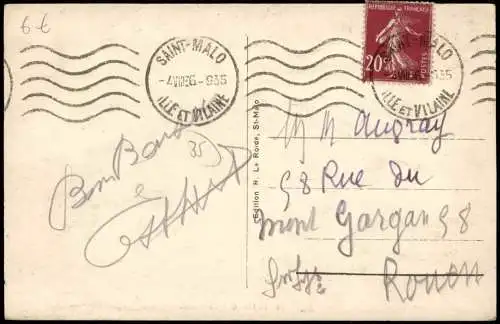 6.€
SAINT-MALO
-4 VIII 36-935
ILLE ET VILAINE
REPUBLIQUE FRANÇAISE
20c
POSTES
SAINT-MALO
ILLE ET VILAINE
Bon Baisers
35
à
Edition R. La Roide, St-Malo
M M Augray
58 Rue du
Mont Gargan 58
Rouen